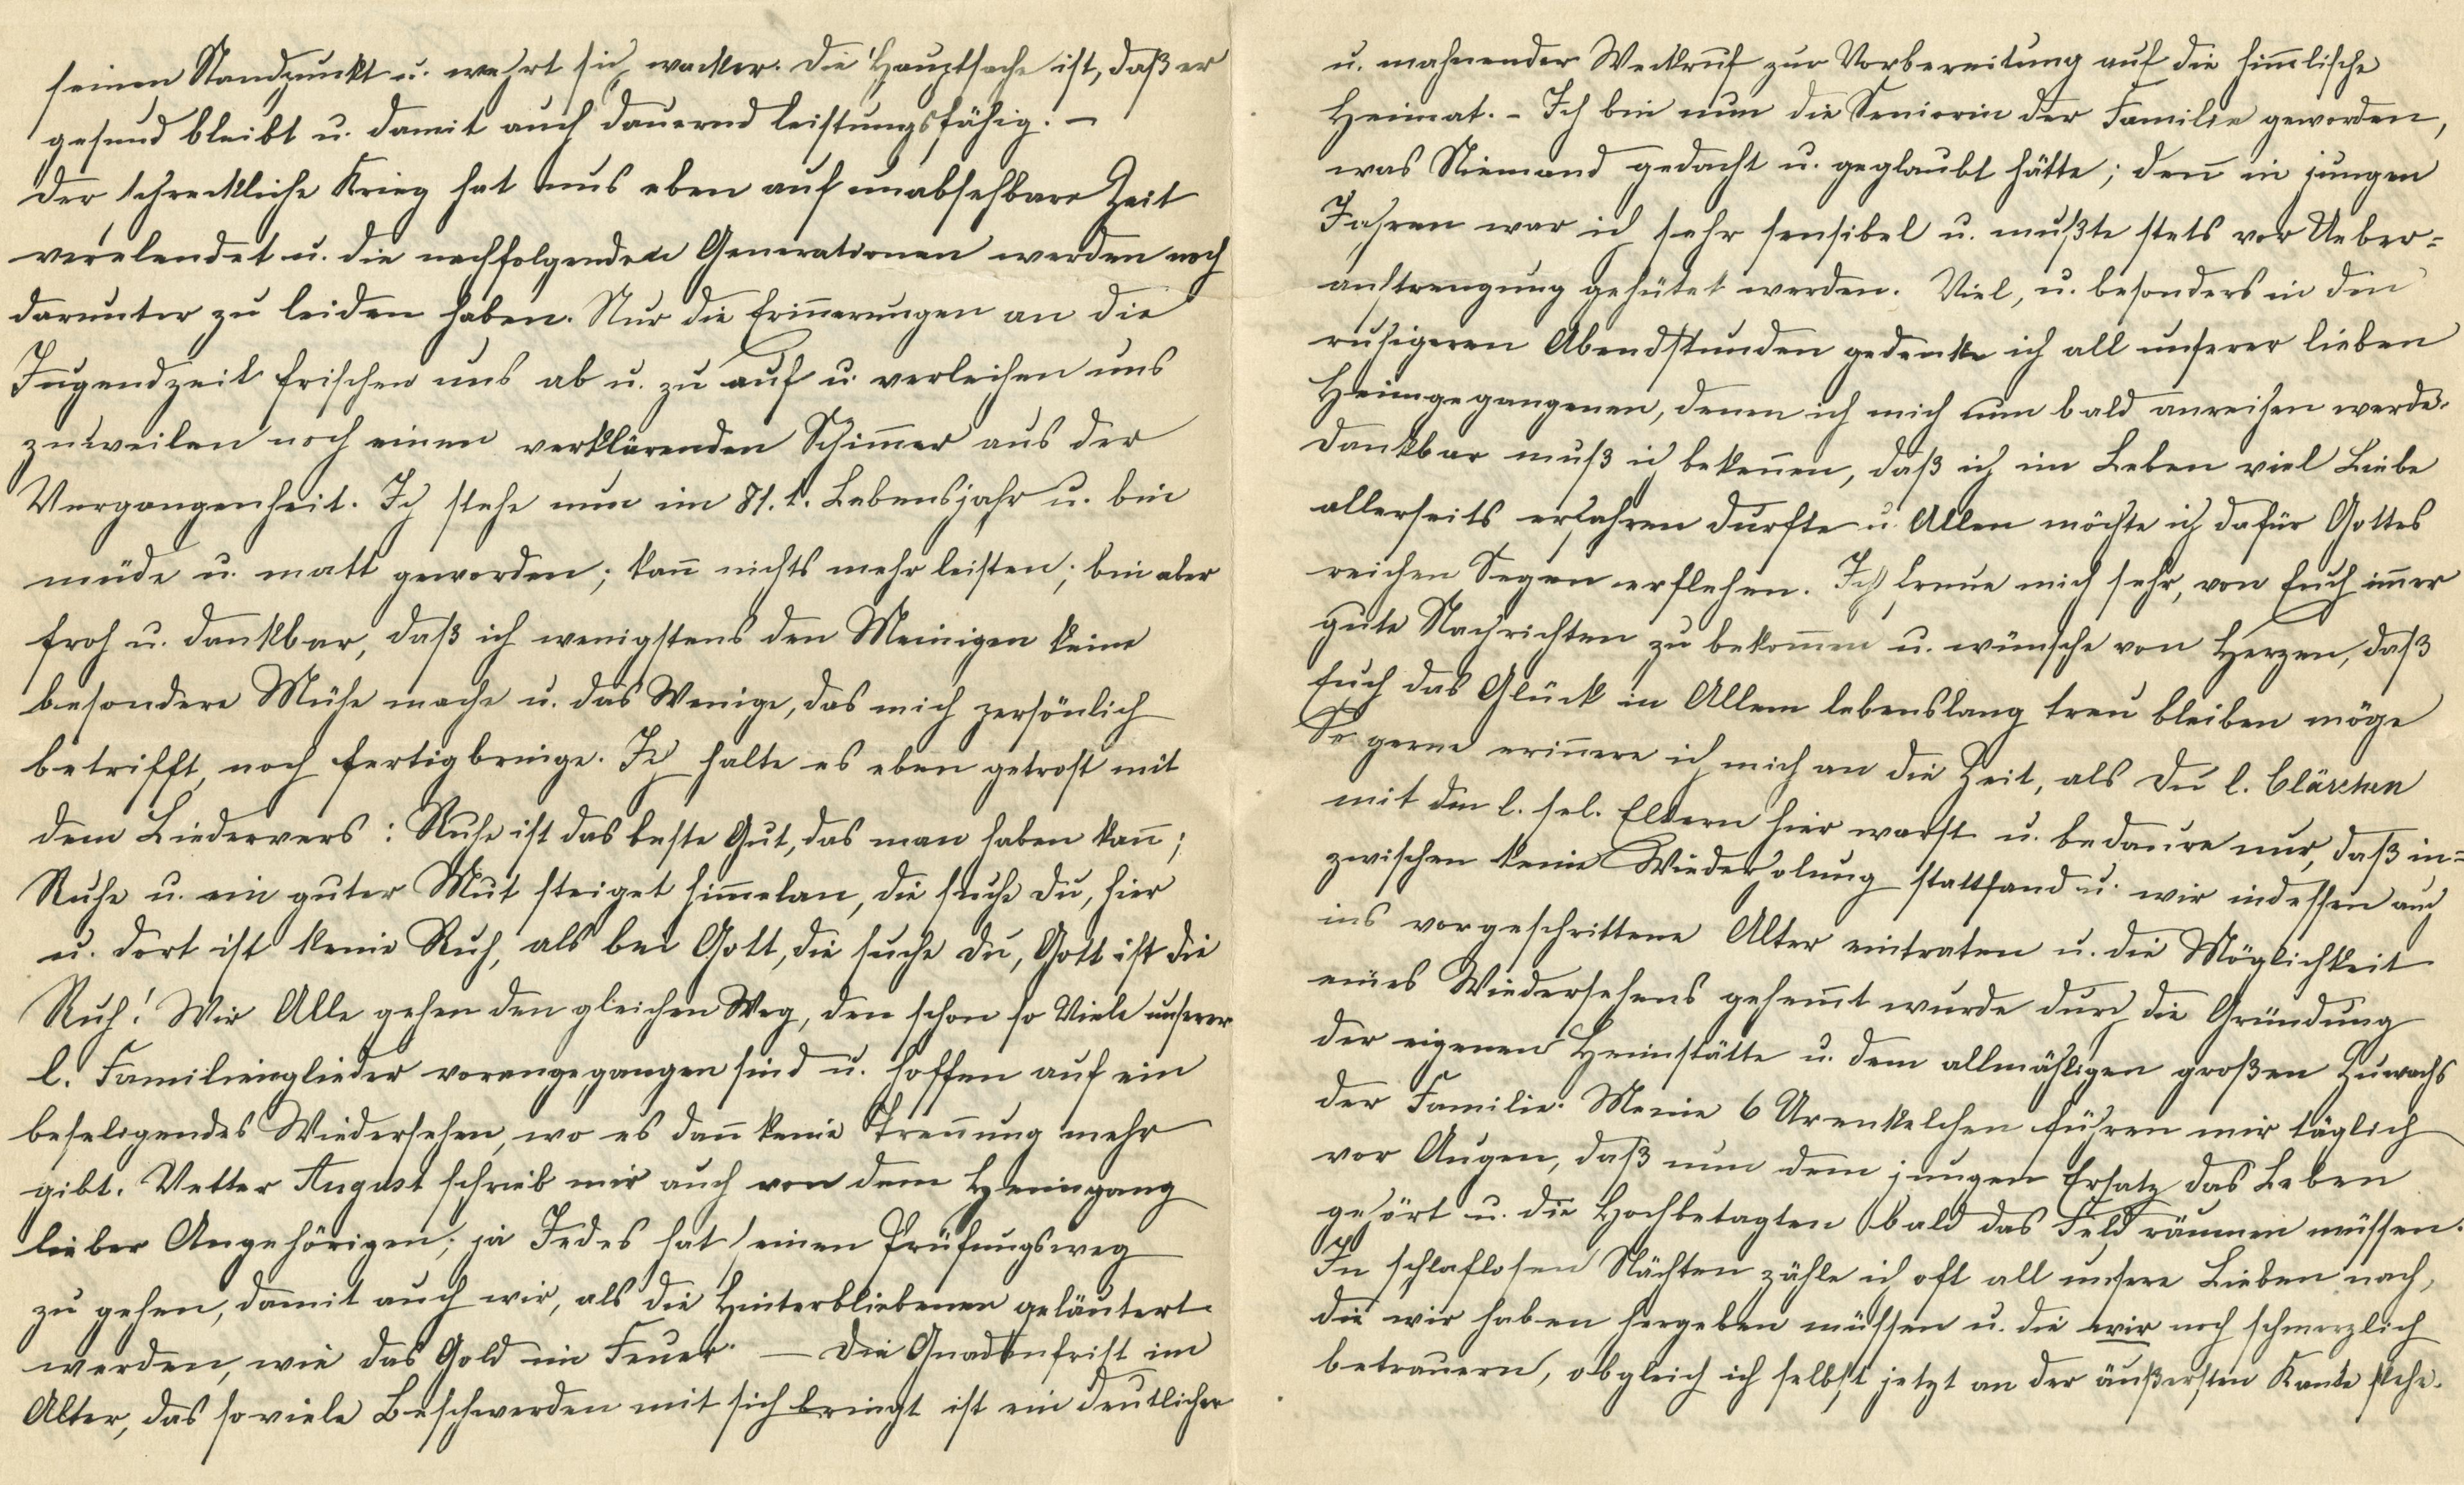 seinen Standpunkt u. wehrt sich wacker. Die Hauptsache ist, daß er
gesund bleibt u. damit auch dauernd leistungsfähig. –
Der schreckliche Krieg hat uns eben auf unabsehbare Zeit
verelendet u. die nachfolgenden Generationen werden noch
darunter zu leiden haben. Nur die Erin̄erungen an die
Jugendzeit frischen uns ab u. zu auf u. verleihen uns
zuweilen noch einen verklärenden Schim̄er aus der
Vergangenheit. Ich stehe nun im 81.t. Lebensjahr u. bin
müde u. matt geworden; kan̄ nichts mehr leisten; bin aber
froh u. dankbar, daß ich wenigstens den Meinigen keine
besondere Mühe mache u. das Wenige, das mich persönlich
betrifft, noch fertigbringe. Ich halte es eben getrost mit
dem Liedervers: Ruhe ist das beste Gut, das man haben kan̄;
Ruhe u. ein guter Mut steiget him̄elan, die suche du, hier
u. dort ist keine Ruh, als bei Gott, die suche du, Gott ist die
Ruh! Wir Alle gehen den gleichen Weg, den schon so Viele unserer
l. Familienglieder vorangegangen sind u. hoffen auf ein
beseligendes Wiedersehen, wo es dan̄ keine Tren̄ung mehr
gibt. Vetter August schrieb mir auch von dem Heimgang
lieber Angehörigen; ja Jedes hat seinen Prüfungsweg
zu gehen, damit auch wir, als die Hinterbliebenen geläutert
werden, wie das Gold im Feuer. — Die Gnadenfrist im
Alter, das so viele Beschwerden mit sich bringt ist ein deutlicher
u. mahnender Weckruf zur Vorbereitung auf die him̄lische
Heimat. – Ich bin nun die Seniorin der Familie geworden,
was Niemand gedacht u. geglaubt hätte; den̄ in jungen
Jahren war ich sehr sensibel u. mußte stets vor Ueber=
anstrengung gehütet werden. Viel, u. besonders in den
ruhigeren Abendstunden gedenke ich all unserer lieben
Heimgegangenen, denen ich mich nun bald anreihen werde.
Dankbar muß ich beken̄en, daß ich im Leben viel Liebe
allerseits erfahren durfte u. Allen möchte ich dafür Gottes
reichen Segen erflehen. Ich freue mich sehr, von Euch im̄er
gute Nachrichten zu bekom̄en u. wünsche von Herzen, daß
Euch das Glück in Allem lebenslang treu bleiben möge
So gerne erin̄ere ich mich an die Zeit, als Du l. Clärchen
mit den l. sel. Eltern hier warst u. bedaure nur, daß in=
zwischen keine Wiederholung stattfand u. wir indessen auch
ins vorgeschrittene Alter eintraten u. die Möglichkeit
eines Wiedersehens gehem̄t wurde durch die Gründung
der eigenen Heimstätte u. dem allmähligen großen Zuwachs
der Familie. Meine 6 Urenkelchen führen mir täglich
vor Augen, daß nun dem jungen Ersatz das Leben
gehört u. die Hochbetagten bald das Feld räumen müssen.
In schlaflosen Nächten zähle ich oft all unsere Lieben nach,
die wir haben hergeben müssen u. die wir noch schmerzlich
betrauern, obgleich ich selbst jetzt an der äußersten Kante stehe.